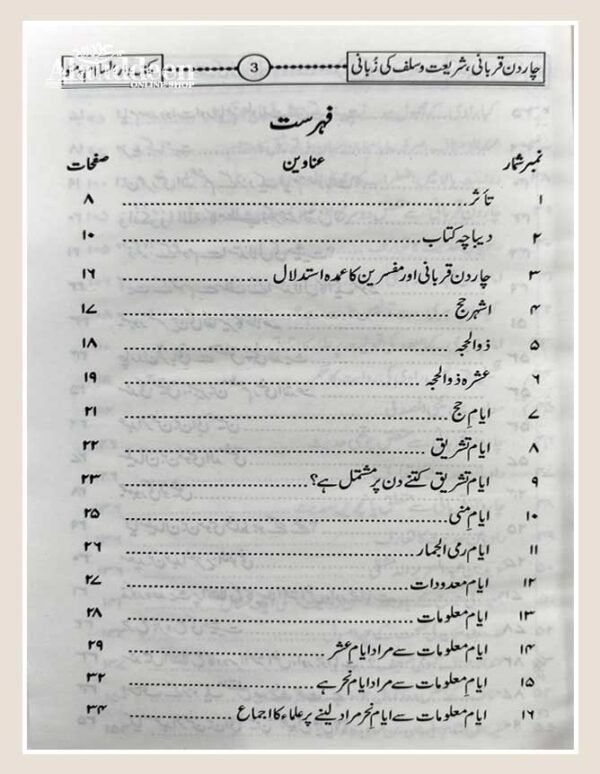 چار دن قربانی، شریعت و سلف کی زبانی
3
ONLINE SHOP
فہرست
نمبر شمار عناوین صفحات
۱ تأثر ۸
۲ دیباچہ کتاب ۱۰
۳ چار دن قربانی اور مفسرین کا عمدہ استدلال ۱۶
۴ اشہر حج ۱۷
۵ ذوالحجہ ۱۸
۶ عشرہ ذوالحجہ ۱۹
۷ ایامِ حج ۲۱
۸ ایامِ تشریق ۲۲
۹ ایامِ تشریق کتنے دن پر مشتمل ہے؟ ۲۳
۱۰ ایامِ منی ۲۵
۱۱ ایامِ رمی الجمار ۲۶
۱۲ ایامِ معدودات ۲۷
۱۳ ایامِ معلومات ۲۸
۱۴ ایامِ معلومات سے مراد ایامِ عشر ۲۹
۱۵ ایامِ معلومات سے مراد ایامِ نحر ہے ۳۲
۱۶ ایامِ معلومات سے ایامِ نحر مراد لینے پر علماء کا اجماع ۳۴